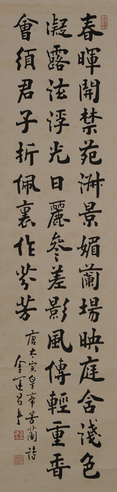 春暉開禁苑淑景媚蘭場映庭含淺色
凝露泫浮光日麗參差影風傳輕重香
會須君子折佩裏作芬芳
唐太宗皇帝芳蘭詩
金運昌